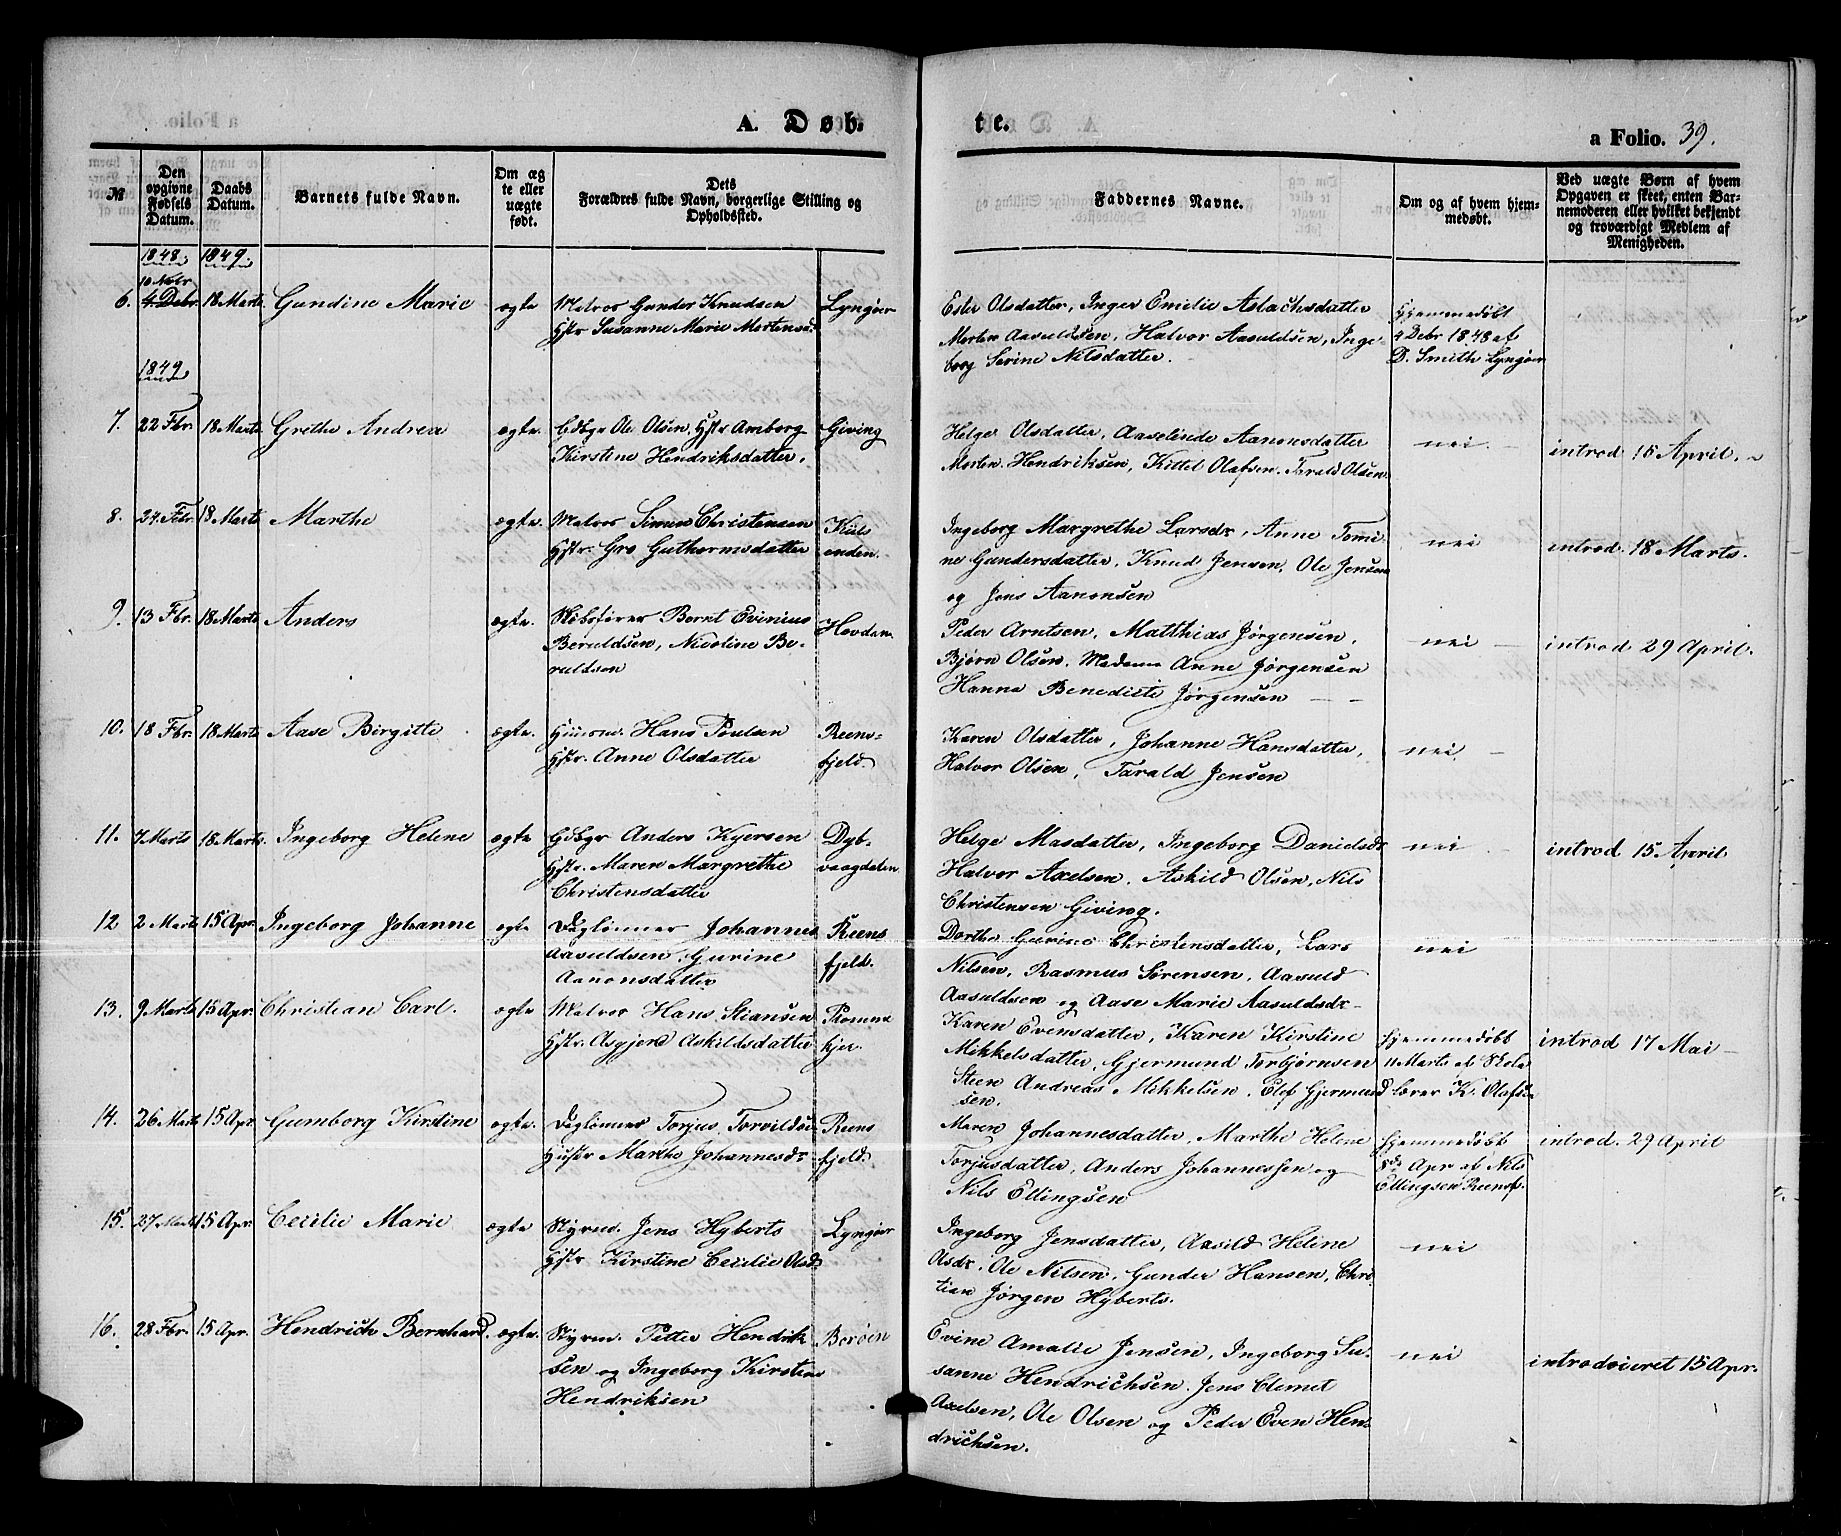 A. Døb-
te.
a Folio. 39.
№
Den opgivne Fødsels Datum.
Daabs Datum.
Barnets fulde Navn.
Om ægte eller uægte født.
Dets Forældres fulde Navn, borgerlige Stilling og Opholdssted.
Faddernes Navne.
Om og af hvem hjemmedøbt.
Ved uægte Børn af hvem Opgaven er skeet, enten Barnemoderen eller hvilket bekjendt og troværdigt Medlem af Menigheden.
1848. 1849.
10 Novbr
6. 4 Debr 18 Marts Gundine Marie ægte Matros Gunder Knudsen Lyngøer
Hstr Susanne Marie Mortensd.
Ester Olsdatter, Inger Emilie Aslachsdatter
Morten Aasuldsen, Halvor Aasuldsen, Inge-
borg Serine Nilsdatter.
Hjemmedøbt
4 Debr 1848 af
D. Smith Lyngøer
1849
7. 22 Fbr. 18 Marts Grethe Andrea ægte. Gdbgr Ole Olsen, Hstr Amborg Giving
Kirstine Hendriksdatter.
Helge Olsdatter, Aaselinde Aanonsdatter
Morten Hendriksen, Kittel Olafsen, Tarald Olsen
nei. introd 15 April.
8. 24 Febr. 18 Marts Marthe ægte. Matros Simen Christensen Kiils
Hstr. Gro Guthormsdatter enden.
Ingeborg Margrethe Larsdr, Anne Tomi-
ne Gundersdatter, Knud Jensen, Ole Jensen
og Jens Aanonsen
nei introd. 18 Marts.
9. 13 Fbr. 18 Marts Anders ægte. Skibsfører Bernt Evinius Hovdan
Beruldsen, Nicoline Be-
ruldsen
Peder Arntsen, Matthias Jørgensen,
Bjørn Olsen, Madame Anne Jørgensen
Hanna Benedicte Jørgensen
nei introd 29 April.
10. 18 Fbr. 18 Marts Aase Birgitte ægte. Huusm. Hans Poulsen Reens-
Hstr. Anne Olsdatter fjeld.
Karen Olsdatter, Johanne Hansdatter,
Halvor Olsen, Tarald Jensen
nei.
11. 7 Marts 18 Marts. Ingeborg Helene ægte Gdbgr Anders Kjersen Dyb-
Hstr. Maren Margrethe vaagdalen
Christensdatter
Helge Masdatter, Ingeborg Danielsdr
Halvor Axelsen, Askild Olsen, Nils
Christensen Giving.
nei introd 15 April
12 2 Marts 15 Apr. Ingeborg Johanne ægte Daglønner Johannes Reens
Aasuldsen, Gurine fjeld.
Aanonsdatter
Dorthe Gurine Christensdatter, Lars
Nilsen, Rasmus Sørensen, Aasuld
Aasuldsen og Aase Marie Aasuldsdr
nei
13. 9 Marts 15 Apr. Christian Carl. ægte Matros Hans Stiansen Plomme
Hstr. Asgjerd Askildsdatter kjer.
Karen Evensdatter, Karen Kirstine
Mikkelsdatter, Gjermund Torbjørnsen
Steen Andreas Mikkelsen, Elef Gjermund
sen.
Hjemmedøbt
11 Marts af Skole
lærer K. Olafsen
introd 17 Mai
14. 26 Marts 15 Apr. Gumborg Kirstine ægte. Daglønner Torjus Torvildsen Reens
Hustr Marthe Johannesdr fjeld.
Maren Johannesdatter, Marthe Helene
Torjusdatter, Anders Johannessen og
Nils Ellingsen
Hjemmedøbt
8de Apr af Nils
Ellingsen Reensf.
introd. 29 April
15. 27 Marts 15 Apr. Cecilie Marie ægte Styrm. Jens Hyberts Lyngøer
Hstr Kirstine Cecilie Olsd
Ingeborg Jensdatter, Aasild Helene
Olsdr, Ole Nilsen, Gunder Hansen, Chri
tian Jørgen Hyberts.
nei
16. 28 Fbr. 15 Apr. Hendrich Bernhard. ægte. Styrm. Petter Hendrik Borøen
sen og Ingeborg Kirstine
Hendriksen
Evine Amalie Jensen, Ingeborg Su-
sanne Hendrichsen, Jens Clemet
Axelsen, Ole Olsen og Peder Even Hen-
drichsen.
nei introduceret 15 Apr.